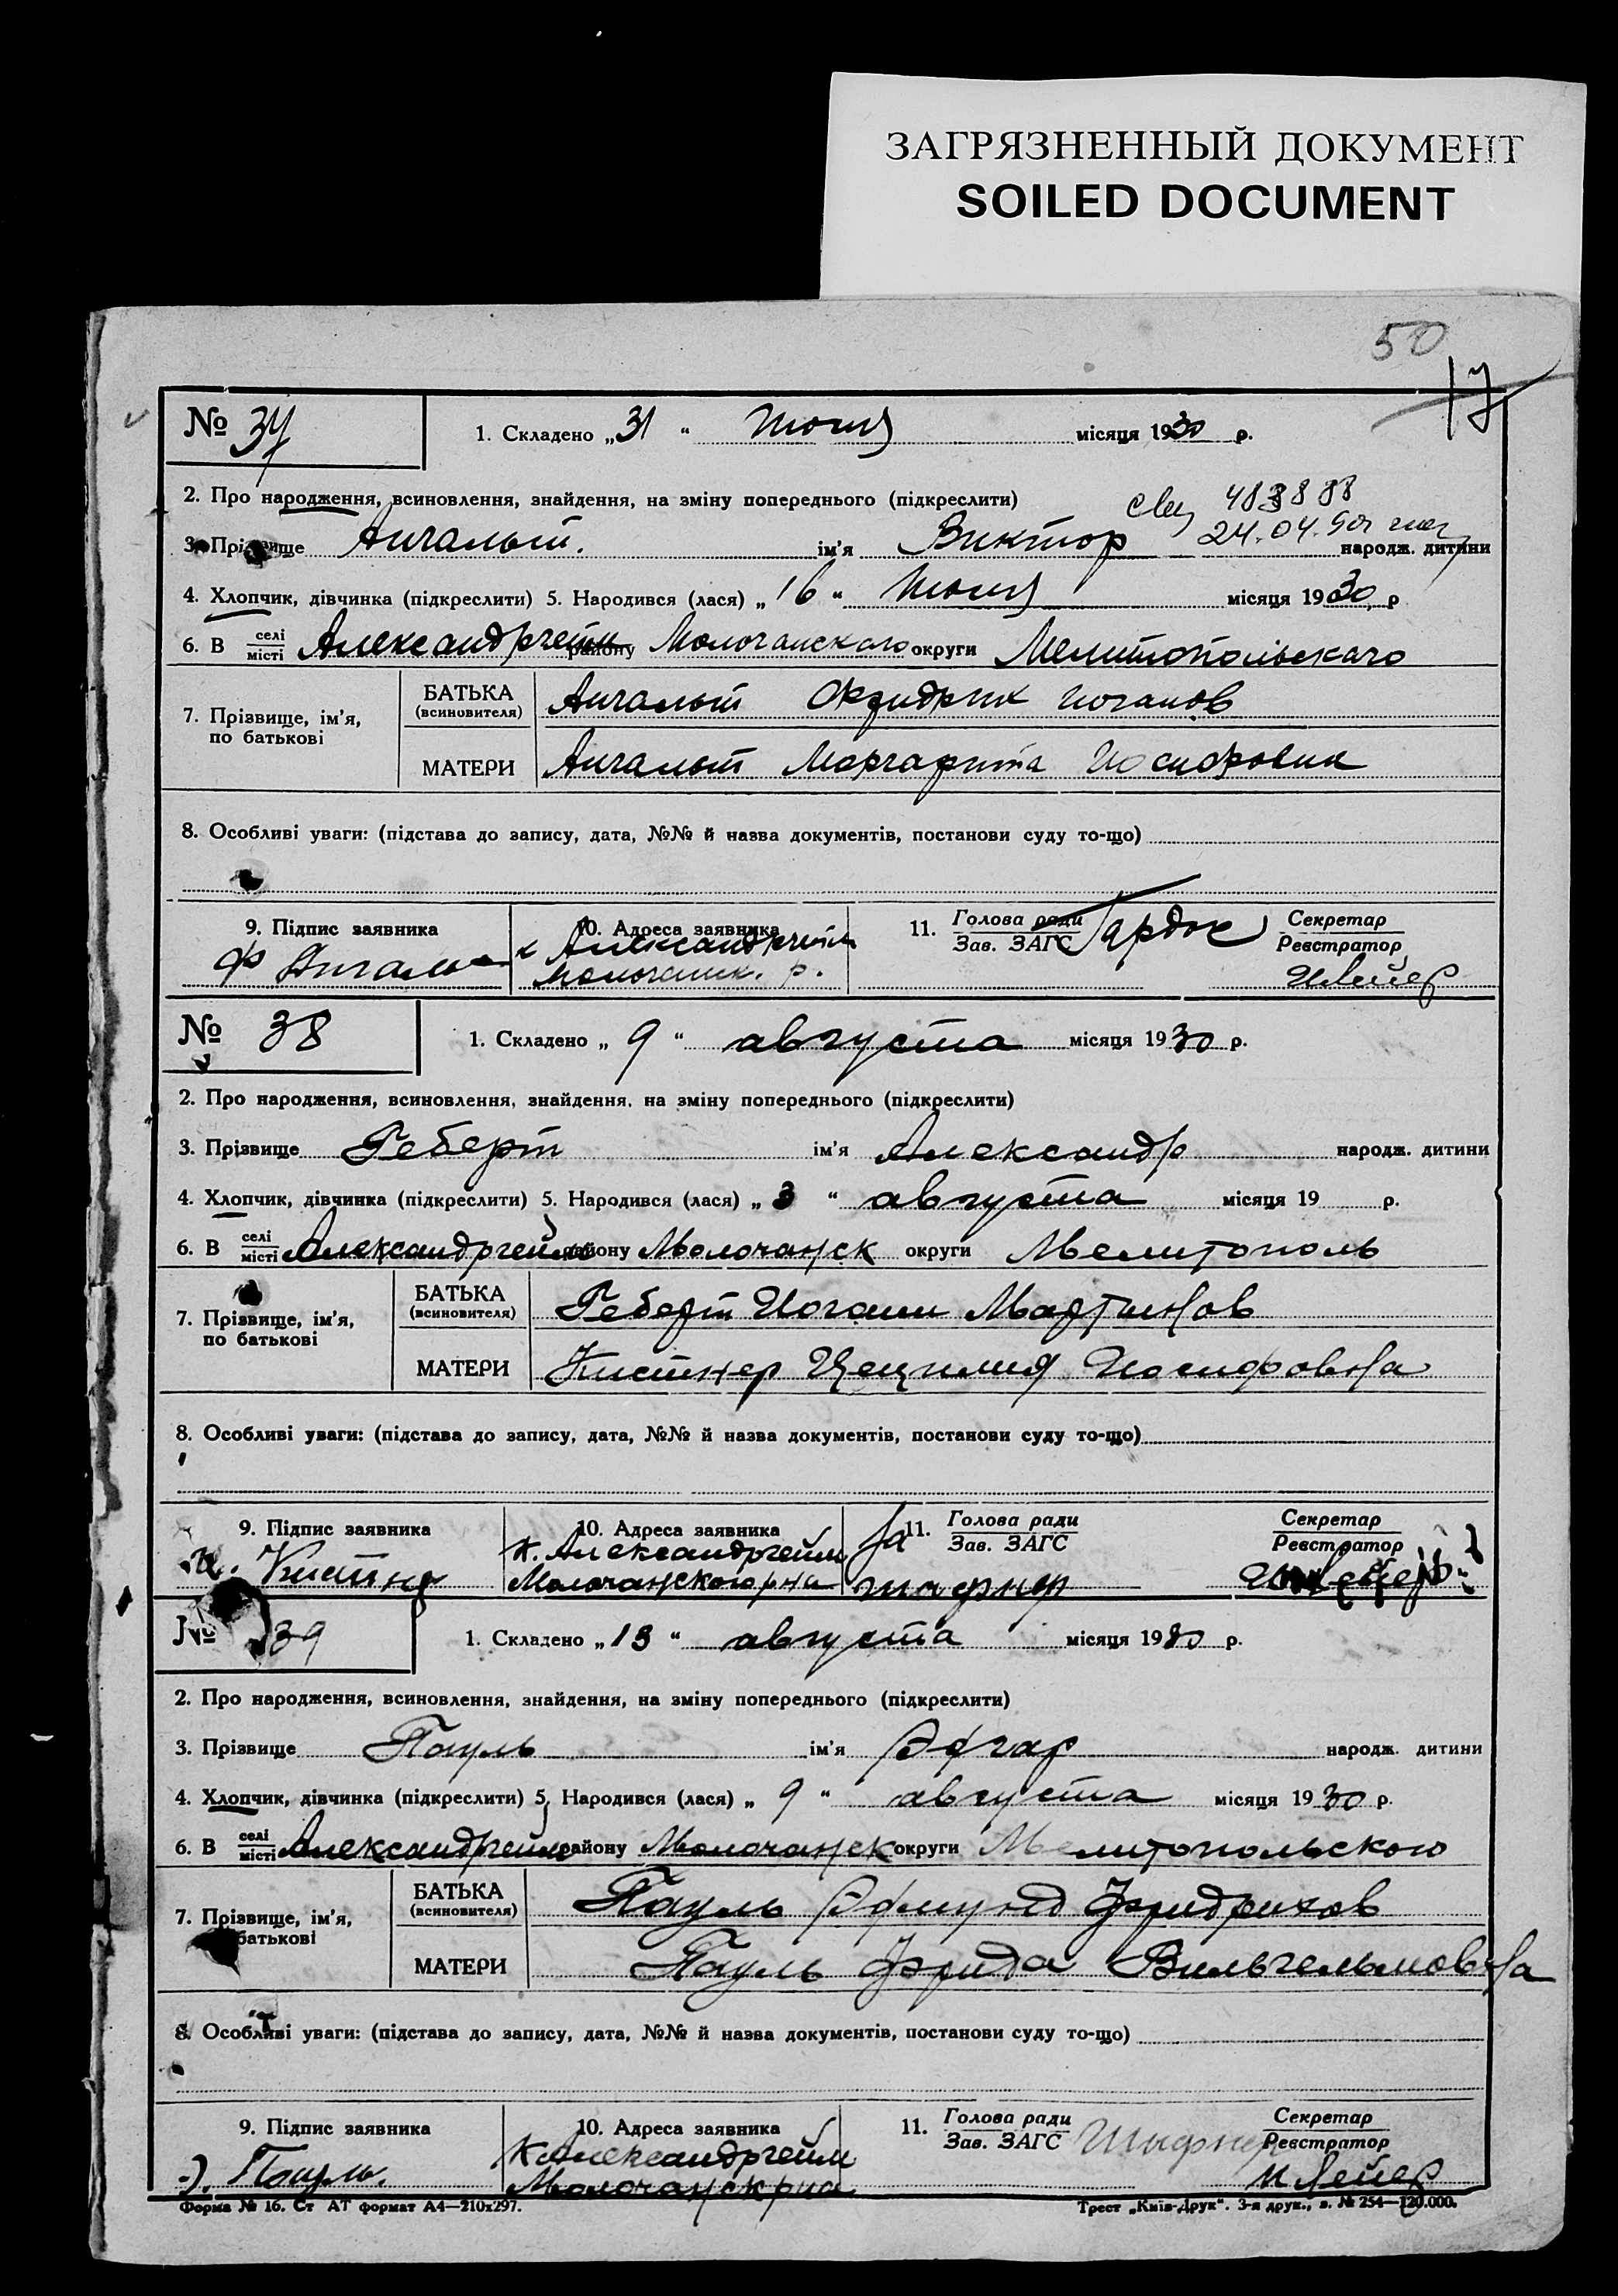 ЗАГРЯЗНЕННЫЙ ДОКУМЕНТ
SOILED DOCUMENT
50
17
№ 37 1. Складено „31“ Июля місяця 1930 р.
2. Про народження, всиновлення, знайдення, на зміну попереднього (підкреслити)
24.04.
3. Прізвище Ангальт. ім'я Виктор народж. дитини
4. Хлопчик, дівчинка (підкреслити) 5. Народився (лася) „16“ Июля місяця 1930 р
6. В селі місті Александргейм району Молочанскаго округи Мелитопольскаго
7. Прізвище, ім'я, по батькові
БАТЬКА (всиновителя) Ангальт Фридрих Иоганов
МАТЕРИ Ангальт Маргарита Иосифовна
8. Особливі уваги: (підстава до запису, дата, №№ й назва документів, постанови суду то-що)
9. Підпис заявника 10. Адреса заявника 11. Голова ради Зав. ЗАГС Секретар Реєстратор
Ф Ангальт к Александргейм
Молочанск. р.
№ 38 1. Складено „9“ августа місяця 1930 р.
2. Про народження, всиновлення, знайдення, на зміну попереднього (підкреслити)
3. Прізвище Геберт ім'я Александр народж. дитини
4. Хлопчик, дівчинка (підкреслити) 5. Народився (лася) „3“ августа місяця 19 р.
6. В селі місті Александргейм району Молочанск округи Мелитополь
7. Прізвище, ім'я, по батькові
БАТЬКА (всиновителя) Геберт Иоганн Мартинов
МАТЕРИ Кистнер Цецилия Иосифовна
8. Особливі уваги: (підстава до запису, дата, №№ й назва документів, постанови суду то-що)
9. Підпис заявника 10. Адреса заявника 11. Голова ради Зав. ЗАГС Секретар Реєстратор
Кистнер к. Александргейм
Молочанского р на
№ 39 1. Складено „13“ августа місяця 1930 р.
2. Про народження, всиновлення, знайдення, на зміну попереднього (підкреслити)
3. Прізвище Пауль ім'я Эдгар народж. дитини
4. Хлопчик, дівчинка (підкреслити) 5. Народився (лася) „9“ августа місяця 1930 р.
6. В селі місті Александргейм району Молочанск округи Мелитопольского
7. Прізвище, ім'я, по батькові
БАТЬКА (всиновителя) Пауль Эдмунд Фридрихов
МАТЕРИ Пауль Фрида Вильгельмовна
8. Особливі уваги: (підстава до запису, дата, №№ й назва документів, постанови суду то-що)
9. Підпис заявника 10. Адреса заявника 11. Голова ради Зав. ЗАГС Секретар Реєстратор
Пауль. к Александргейм
Молочанск р на
Форма № 16. Ст АТ формат А4—210х297. Трест „Київ-Друк“. 3-я друк., з. № 254—120.000.